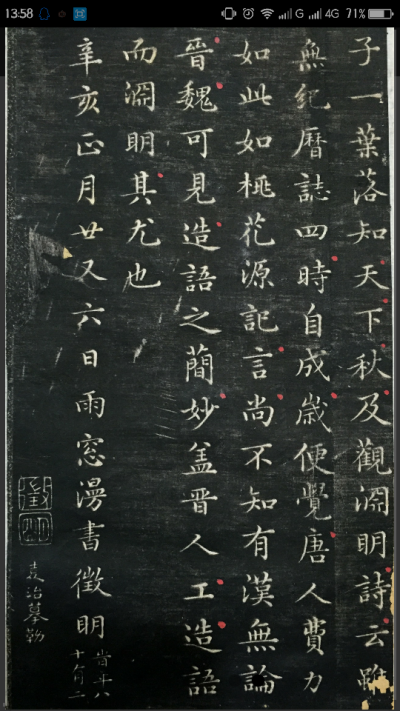 13:58 G 4G 71%
子一葉落知天下秋及觀淵明詩云雖
無紀曆誌四時自成歲便覺唐人費力
如此如桃花源記言尚不知有漢無論
晉魏可見造語之簡妙盖晋人工造語
而淵明其尤也
辛亥正月廿又六日雨窓漫書徵明
時年八
十有二
袁治摹勒